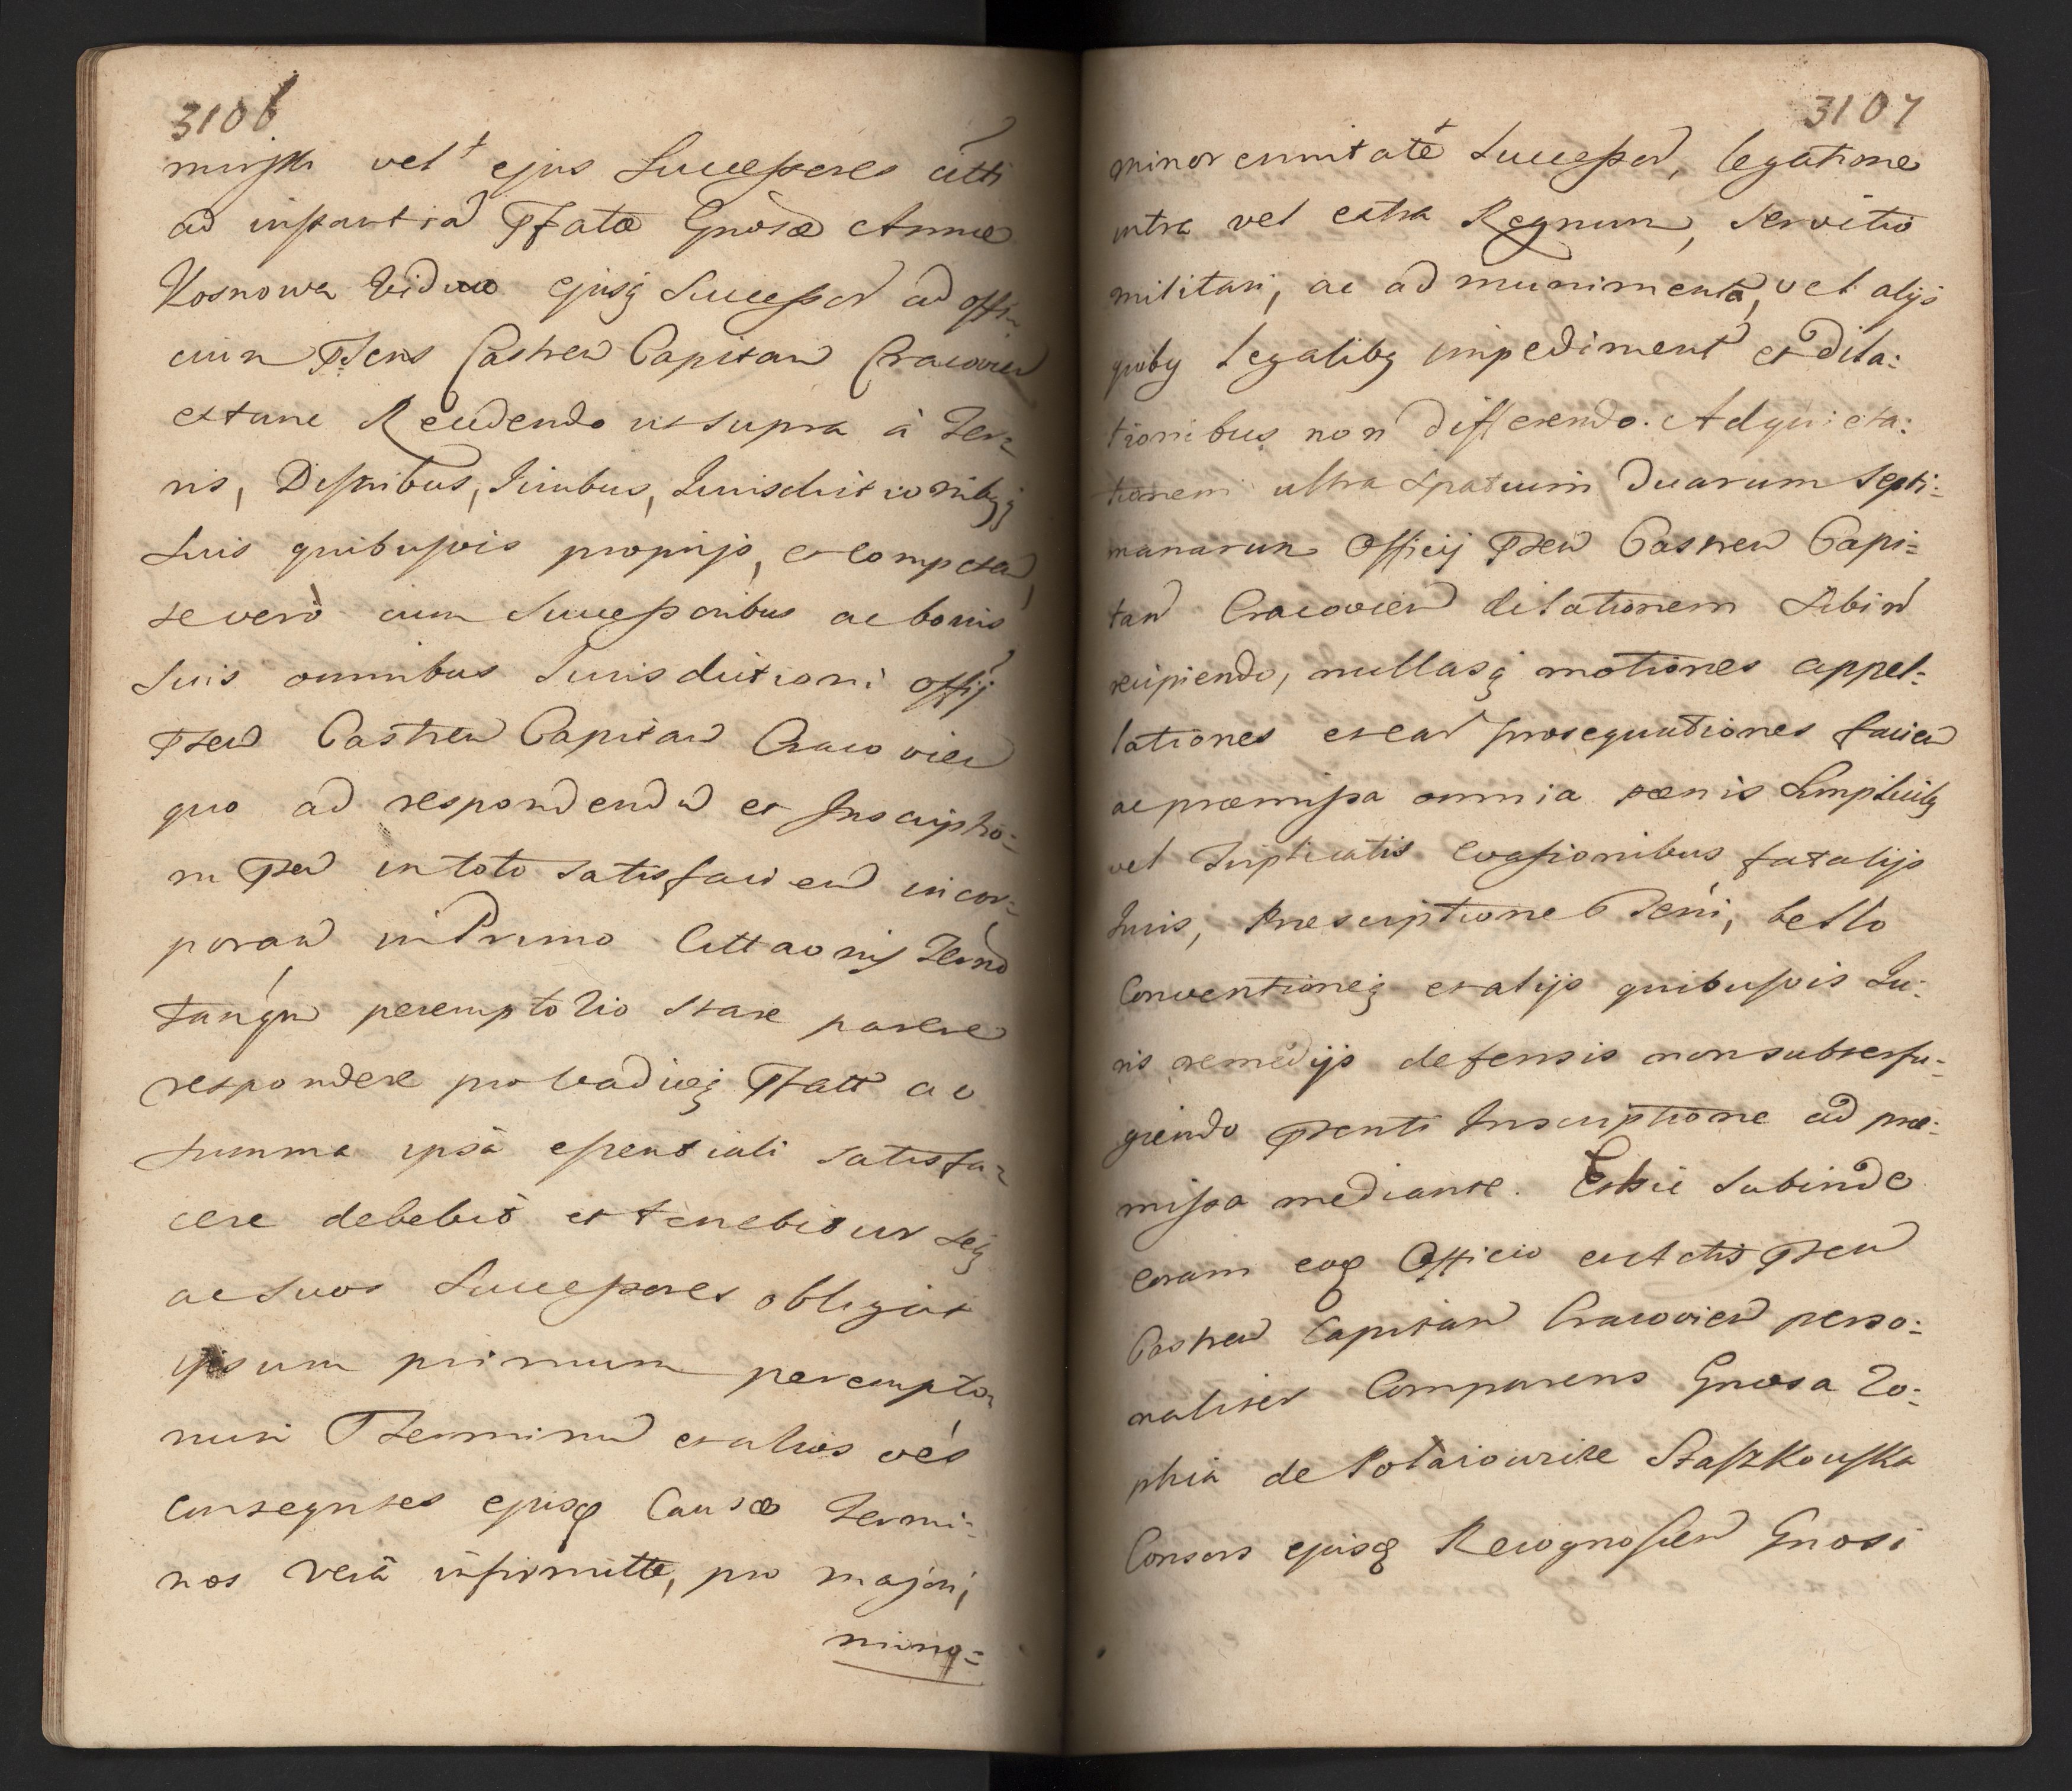 3106
vel ejus Successores citti
ad instantiā Pfatæ Gnosæ Annæ
Kosnowa Viduæ ejusq Successor ad offi=
cium Psens Castren Capitan Cracovien
extunc Recedendo ut supra à Ter=
ris, Distribus, Juribus, Jurisdictionibqq
suis quibusvis proprijs, et competen,
se verò cum Successoribus ac bonis
suis omnibus Jurisdictioni offij
Psen Castren Capitan Cracovien
quo ad respondend et Inscriptio=
ni Psen in toto satisfacien incor=
poran in Primo Cittaonis Termō
tanqm peremptorio stare parere
respondere pro vadijsq Pfatt ac
summa ipsa essentiali satisfa=
cere debebit et tenebitur seq
ac suos Successores obligat
ipsum primum perempto=
rium Terminum et alios oēs
consequtes ejusq Causæ Termi=
nos verā infirmitte, pro majori,
mino=
3107
minorennitate Successor, legatione
intra vel extra Regnum, servitio
militari, ac ad munimenta, vel alijs
quibq legalibq impediment et dila:
tionibus non differendo. Adquieta:
tionem ultra spatium duarum septi=
manarum Officij Psen Castren Capi=
tan Cracovien dilationem sibi non
recipiendo, nullasq motiones appel=
lationes et ear prosequutiones facien
ac præmissa omnia pænis simplicibq
vel triplicatis evasionibus fatalijs
Juris, Præscriptione Teri, bello
Conventioneq et alijs quibusvis Ju:
ris remedijs defensis non subterfu=
giendo Psenti Inscriptione ad præ:
missa mediante. Et hic subinde
coram eoq Officio actisq Psen
Castren Capitan Cracovien perso:
naliter Comparens Gnosa Zo:
phia de Staszkowska
Consors ejusq Recognoscen Gnosi